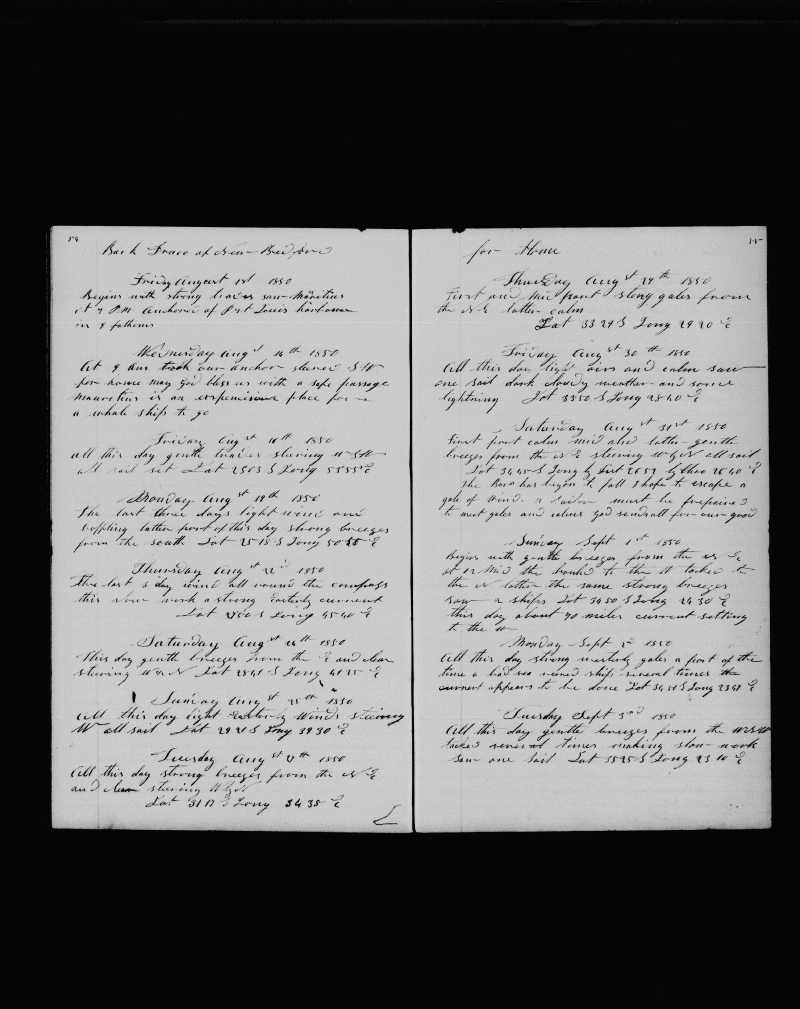 54
Bark Draco of New Bedford
Friday August 1850
Begins with strong trades saw Maritius
at 7 PM Anchored of Port Louis harbour
in 8 fathoms
Wednesday Augst 14th 1850
At 9 Am took our anchor steered SW
for home may God bless us with a safe passage
Mauritius is an expensive place for
a whale ship to go
Friday Augst 16th 1850
All this day gentle trades steering WSW
all sail set Lat 2503 S Long 5555 E
Monday Augst 19th 1850
The last three days light wind and
baffling latter part of this day strong breezes
from the south Lat 2518 S Long E
Thursday Augst 1850
The last 3 day wind all round the compass
this slow work a strong Easterly current
Lat S Long 4540 E
Saturday Augst 24th 1850
This day gentle breezes from the E and clear
steering Lat S Long E
Sunday Augst 25th 1850
All this day light Easterly Winds steering
W all sail Lat S Long 3930 E
Tuesday Augst 1850
All this day strong breezes from the N E
and clear steering WbyN
Lat 3117 S Long 3438 E
55
for Home
Thursday Augst 29th 1850
First and mid part strong gales from
the N E latter calm
Lat 3329 S Long 2920 E
Friday Augst 30th 1850
All this day light airs and calm saw
one sail dark cloudy weather and some
lightning Lat 3350 S Long 2840 E
Saturday Augst 31st 1850
First part calm mid and latter gentle
breezes from the N E steering WbyN all sail
Lat 3445 S Long by Dist by Chro E
The Baro has begun to fall I hope to escape a
gale of Wind. a Sailor must be prepaired
to meet gales and calms god sends all for our good
Sunday Sept 1st 1850
Begins with gentle breezes from the N E
at 12 Mid the hauled to the W tacked to
the N latter the same strong breezes
saw 2 ships Lat 3450 S Long 2430 E
this day about 70 miles current setting
to the W
Monday Sept 2d 1850
All this day strong westerly gales a part of the
time a bad sea weared ship several times the
current appears to be done Lat S Long E
Tuesday Sept 3rd 1850
All this day gentle breezes from the WSW
tacked several times making slow work
saw one sail Lat S Long 2310 E